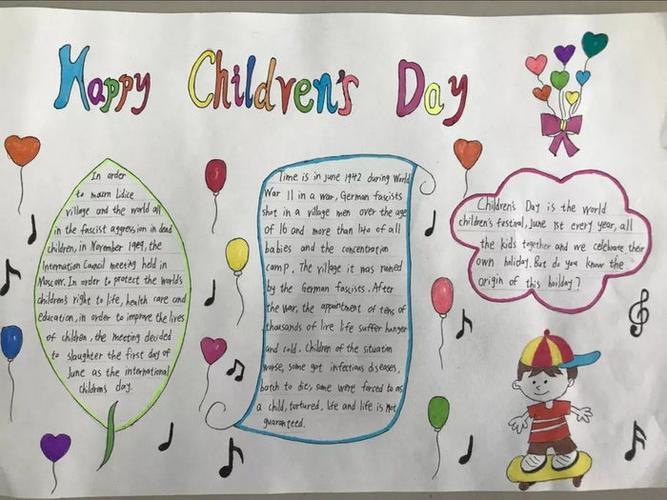 Happy Children's Day
In order
to mourn Lidice
village and the world all
in the fascist aggression in dead
children, in November 1949, the
Internation Council meeting held in
Moscow. In order to protect the world's
children's right to life, health care and
education, in order to improve the lives
of children, the meeting decided
to slaughter the first day of
June as the international
childrens day.
Time is in june 1942 during World
War II in a war, German fascists
shot in a village men over the age
of 16 and more than 140 of all
babies and the concentration
camp. The village it was ruined
by the German fascists. After
the war, the appointment of tens of
thousands of live life suffer hunger
and cold. Children of the situation
worse, some got infectious diseases,
batch to die, some were forced to as
a child, tortured, life and life is not
guaranteed.
Children's Day is the world
children's festival, June 1st every year, all
the kids together and we celebrate their
own holiday. But do you know the
origin of this hoilday?